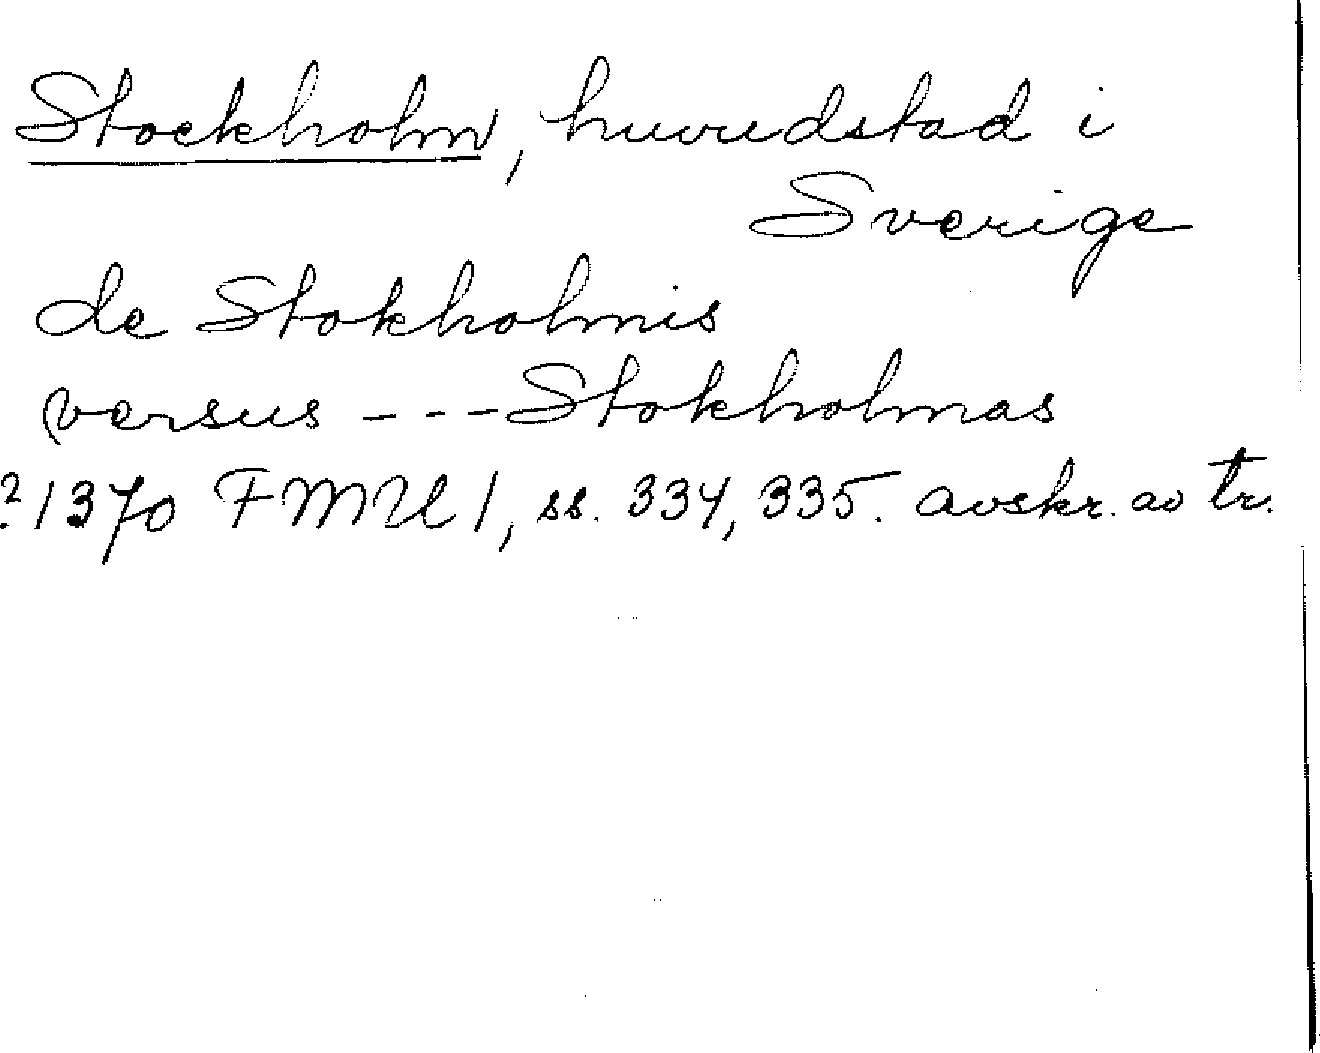 Stockholm, huvudstad i
Sverige
de Stokholmis
versus --- Stokholmas
? 1370 FMU 1, ss. 334, 335. avskr. av tr.